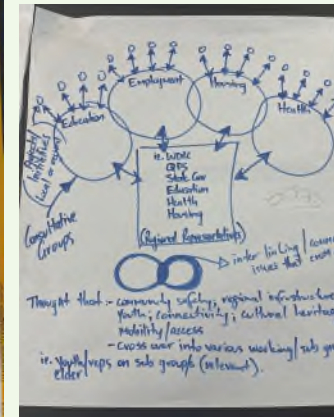 Employment
Housing
Education
Health
initiatives
(local or regional)
Consultative
Groups
ie. WORC
QPS
State Gov
Education
Health
Housing
(Regional Representatives)
inter linking /
issues that
Thought that:- community safety, regional infrastructure
Youth; connectivity; cultural heritage
Mobility/access
- cross over into various working/sub
ie. Youth/reps on sub groups (relevant).
elder